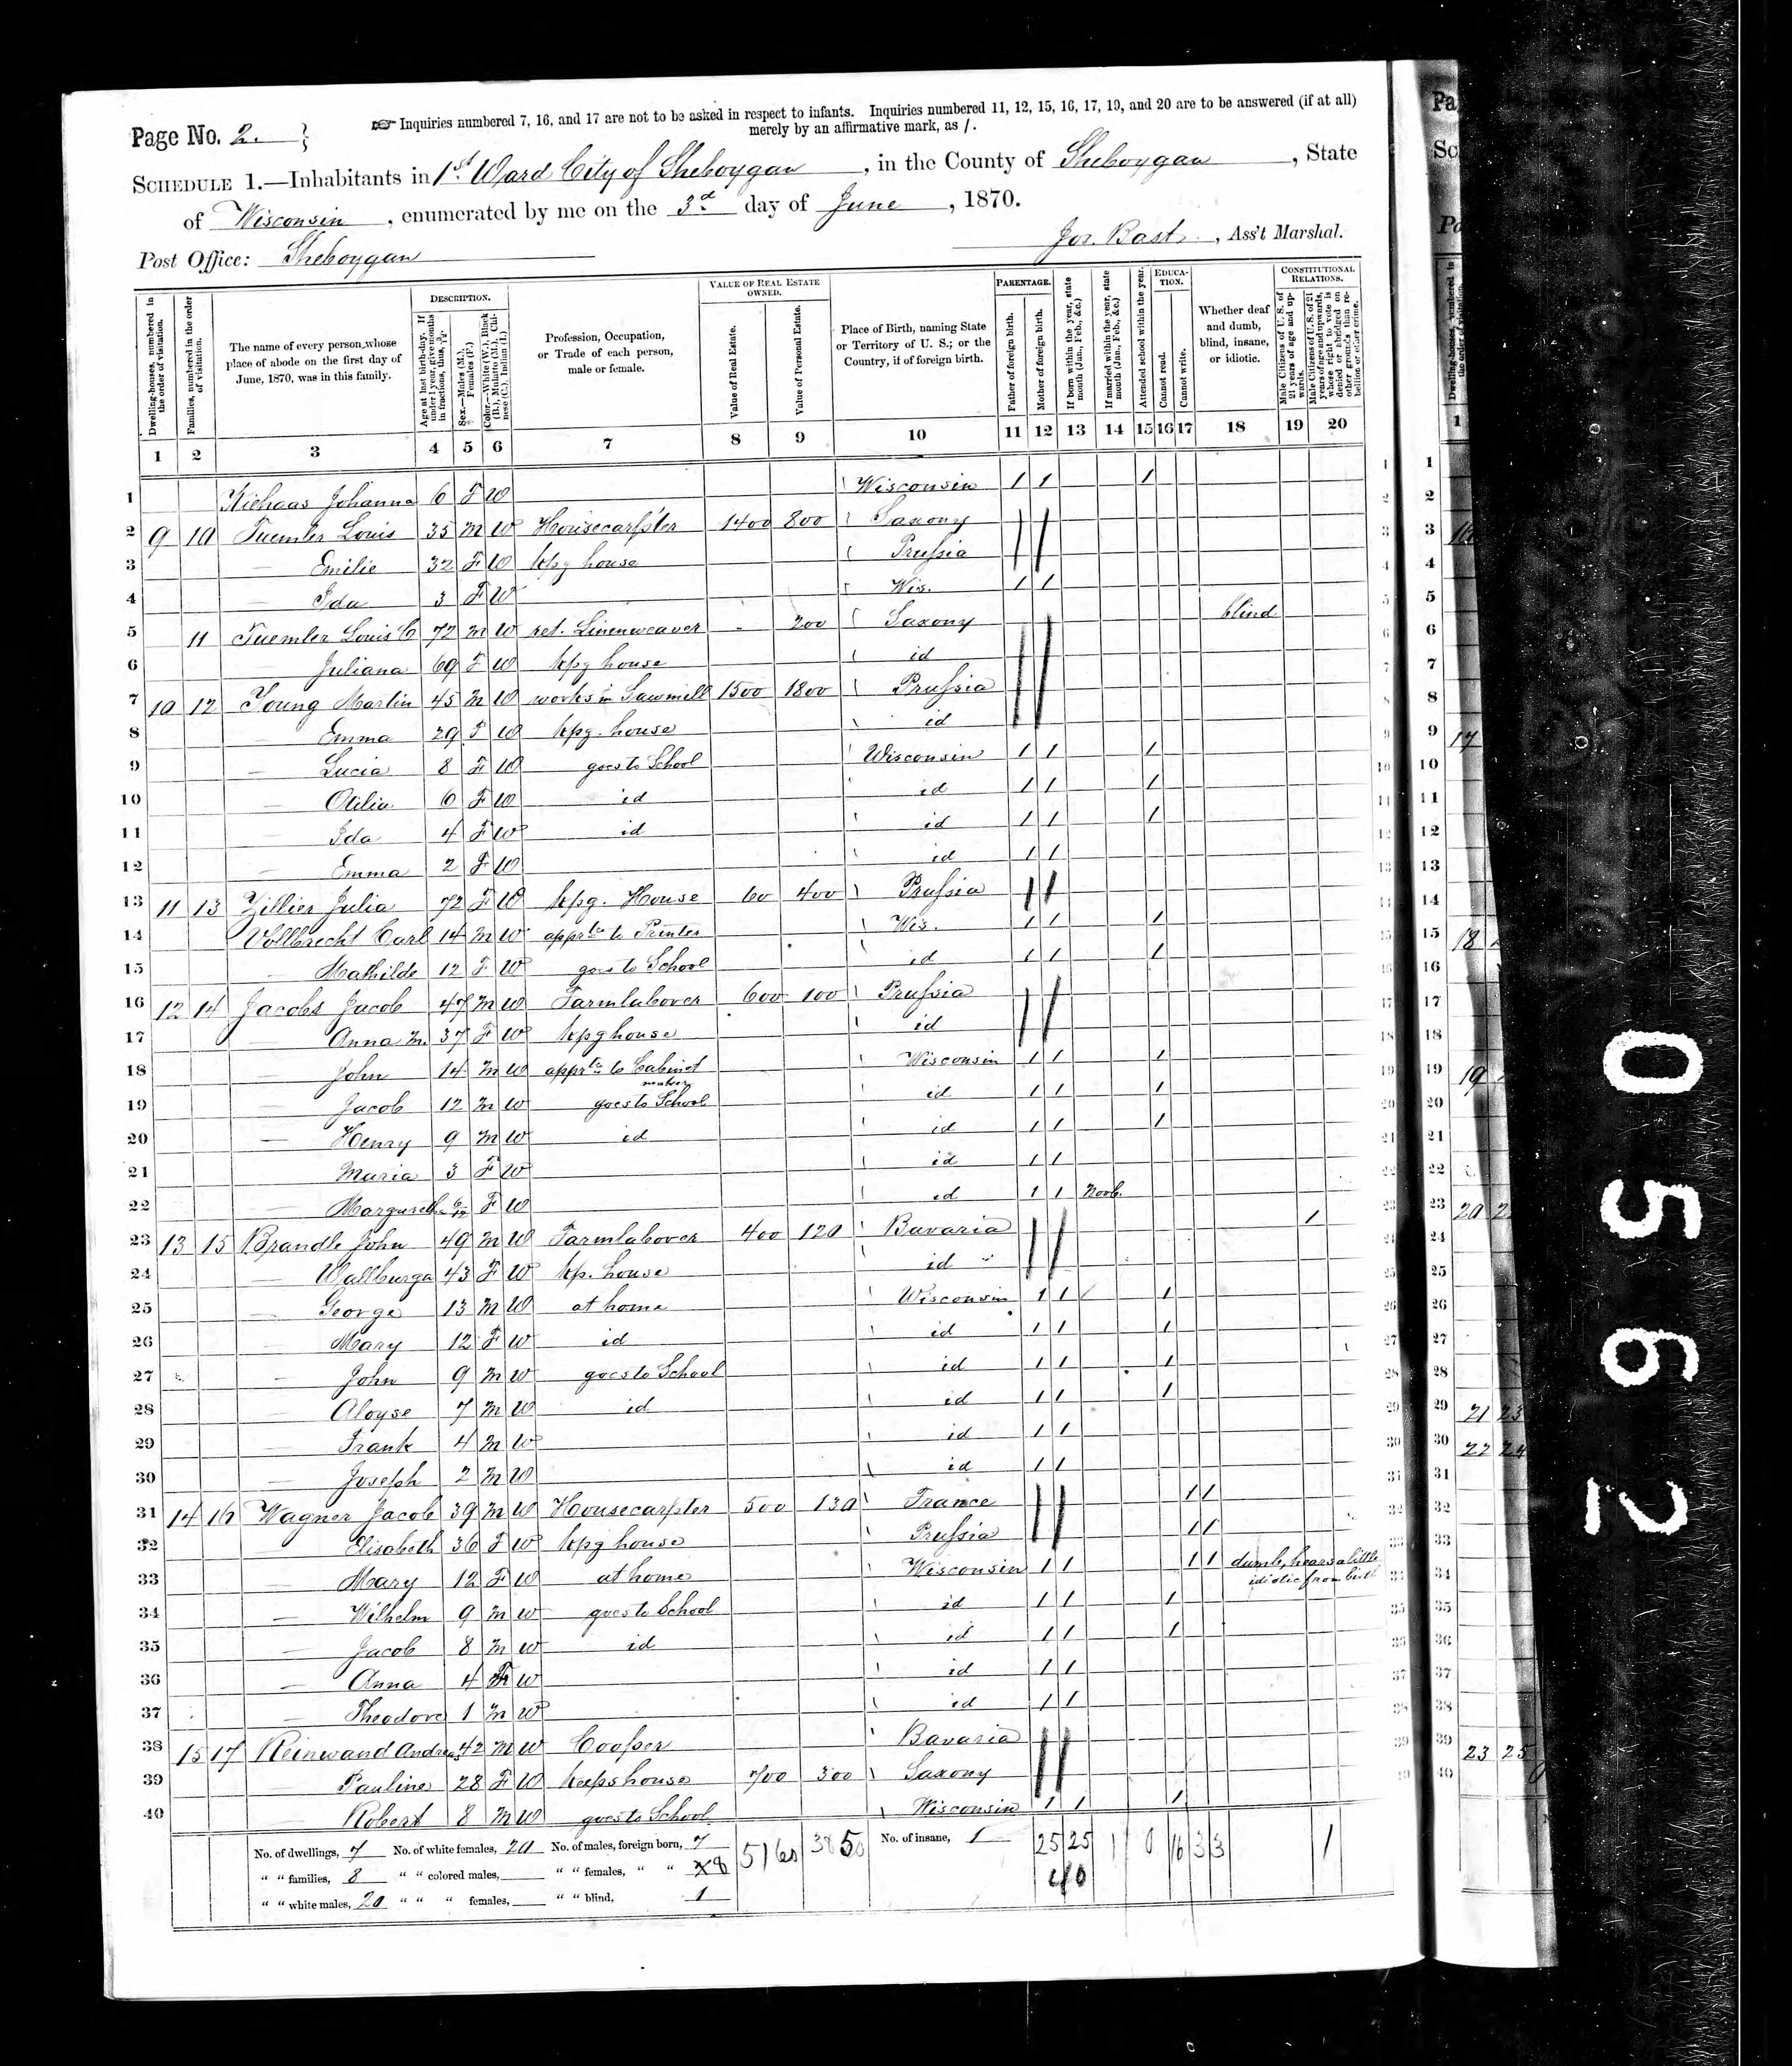 Page No. 2.
☞ Inquiries numbered 7, 16, and 17 are not to be asked in respect to infants. Inquiries numbered 11, 12, 15, 16, 17, 19, and 20 are to be answered (if at all)
merely by an affirmative mark, as /.
SCHEDULE 1.—Inhabitants in 1st Ward City of Sheboygan, in the County of Sheboygan, State
of Wisconsin, enumerated by me on the 3d day of June, 1870.
Post Office: Sheboygan
Jos. Bast, Ass't Marshal.
Dwelling-houses, numbered in the order of visitation.
Families, numbered in the order of visitation.
The name of every person whose place of abode on the first day of June, 1870, was in this family.
DESCRIPTION.
Age at last birth-day. If under 1 year, give months in fractions, thus, 3/12.
Sex.—Males (M.), Females (F.)
Color.—White (W.), Black (B.), Mulatto (M.), Chinese (C.), Indian (I.)
Profession, Occupation, or Trade of each person, male or female.
VALUE OF REAL ESTATE OWNED.
Value of Real Estate.
Value of Personal Estate.
Place of Birth, naming State or Territory of U. S.; or the Country, if of foreign birth.
PARENTAGE.
Father of foreign birth.
Mother of foreign birth.
If born within the year, state month (Jan., Feb., &c.)
If married within the year, state month (Jan., Feb., &c.)
Attended school within the year.
EDUCATION.
Cannot read.
Cannot write.
Whether deaf and dumb, blind, insane, or idiotic.
CONSTITUTIONAL RELATIONS.
Male Citizens of U. S. of 21 years of age and upwards.
Male Citizens of U. S. of 21 years of age and upwards, whose right to vote is denied or abridged on other grounds than rebellion or other crime.
1 2 3 4 5 6 7 8 9 10 11 12 13 14 15 16 17 18 19 20
1 Johanna 6 F W Wisconsin 1 1 1
2 9 10 Tuemler Louis 35 M W Housecarpter 1400 800 Saxony
3 Emilie 32 F W kpg house Prussia
4 Ida 3 F W Wis. 1 1
5 11 Tuemler Louis C 72 M W ret. Linenweaver 200 Saxony blind
6 Juliana 69 F W kpg house id
7 10 12 Young Martin 45 M W works in Sawmill 1500 1800 Prussia
8 Emma 29 F W kpg. house id
9 Lucia 8 F W goes to School Wisconsin 1 1 1
10 Otilia 6 F W id id 1 1 1
11 Ida 4 F W id id 1 1 1
12 Emma 2 F W id 1 1
13 11 13 Zillier Julia 72 F W kpg. House 60 400 Prussia
14 Vollbrecht Carl 14 M W apprtce to Printer Wis. 1 1 1
15 Mathilde 12 F W goes to School id 1 1 1
16 12 14 Jacobs Jacob 47 M W Farmlaborer 600 100 Prussia
17 Anna M. 37 F W kpg house id
18 John 14 M W apprtce to Cabinet maker Wisconsin 1 1 1
19 Jacob 12 M W goes to School id 1 1 1
20 Henry 9 M W id id 1 1 1
21 Maria 3 F W id 1 1
22 F W id 1 1 Novb.
23 13 15 Brandle John 49 M W Farmlaborer 400 120 Bavaria 1
24 Wallburga 43 F W kp. house id
25 George 13 M W at home Wisconsin 1 1 1
26 Mary 12 F W id id 1 1 1
27 John 9 M W goes to School id 1 1 1
28 Aloyse 7 M W id id 1 1 1
29 Frank 4 M W id 1 1
30 Joseph 2 M W id 1 1
31 14 16 Wagner Jacob 39 M W Housecarpter 500 130 France 1 1
32 Elisabeth 36 F W kpg house Prussia 1 1
33 Mary 12 F W at home Wisconsin 1 1 1 1 dumb, hears a little idiotic from birth
34 Wilhelm 9 M W goes to School id 1 1 1
35 Jacob 8 M W id id 1 1 1
36 Anna 4 F W id 1 1
37 Theodore 1 M W id 1 1
38 15 17 Reinwand Andreas 42 M W Cooper Bavaria
39 Pauline 28 F W keeps house 700 300 Saxony
40 Robert 8 M W goes to School Wisconsin 1 1 1
No. of dwellings, 7 No. of white females, 20 No. of males, foreign born, 7 5160 3850 No. of insane, 1 25 25 1 0 16 3 3 1
" " families, 8 " " colored males, " " females, " " 8 40
" " white males, 20 " " " females, " " blind, 1
05962